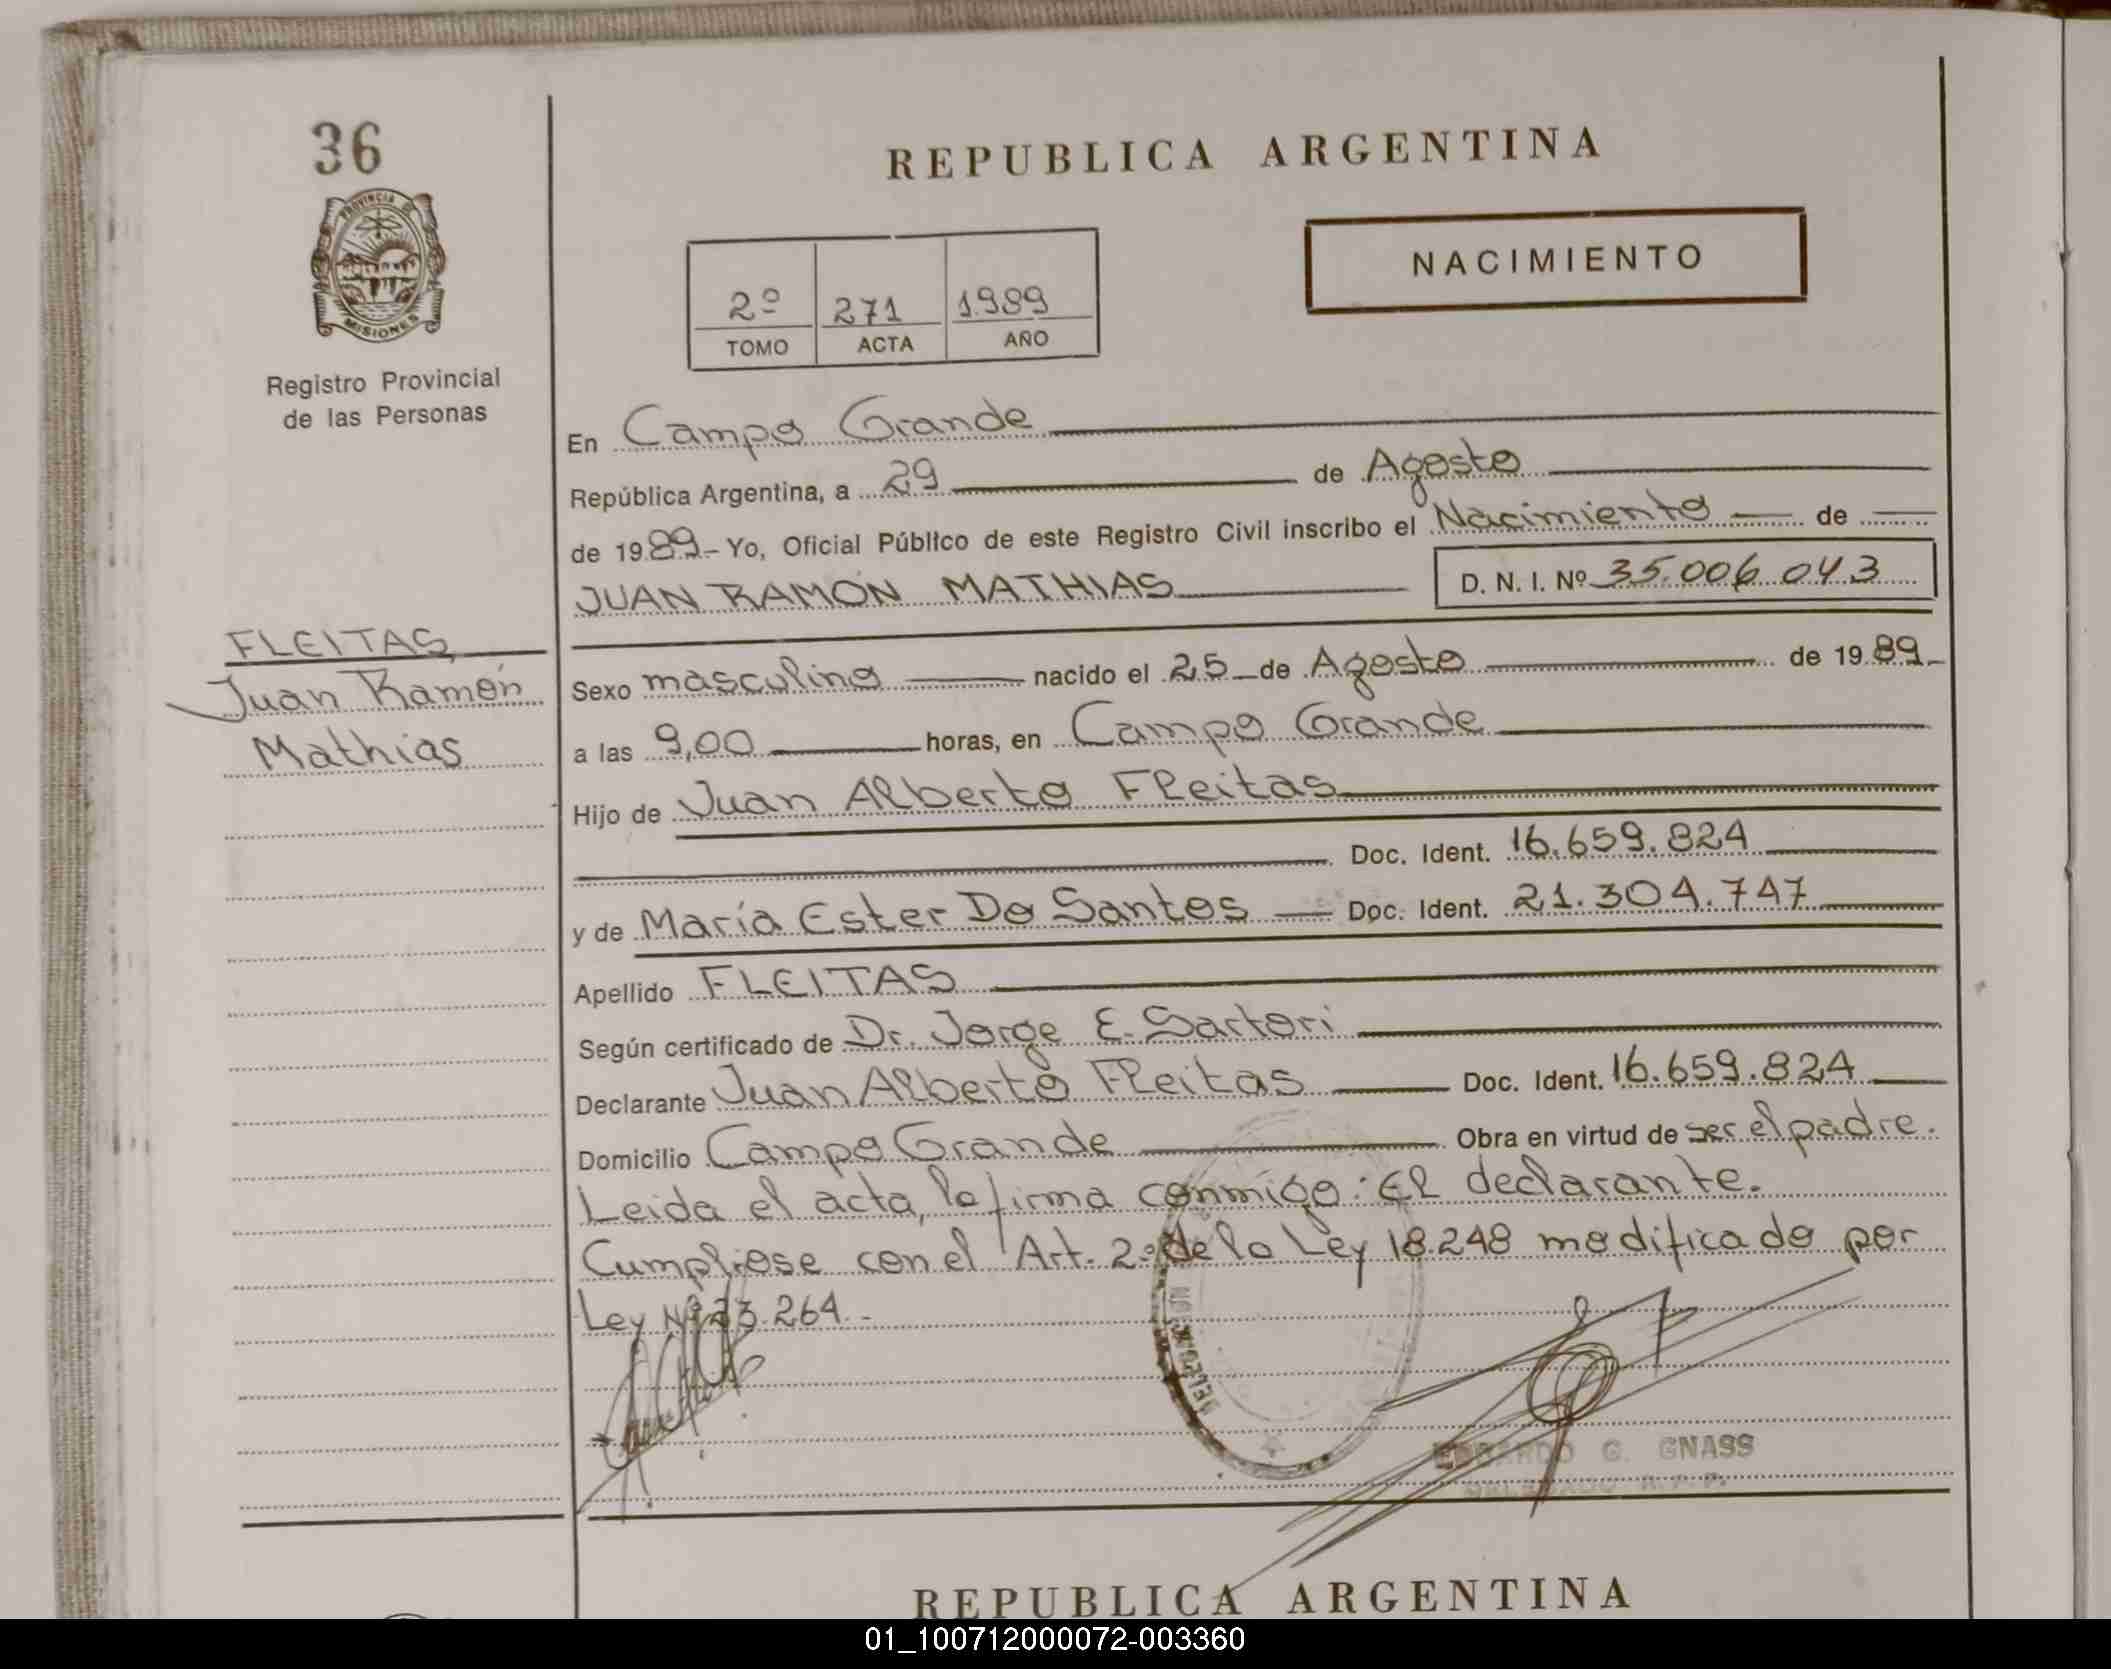 36
PROVINCIA DE
MISIONES
Registro Provincial
de las Personas
REPUBLICA ARGENTINA
NACIMIENTO
2º 271 1989
TOMO ACTA AÑO
En Campo Grande
República Argentina, a 29 de Agosto
de 1989 - Yo, Oficial Público de este Registro Civil inscribo el Nacimiento de
JUAN RAMÓN MATHIAS D. N. I. Nº 35.006.043
FLEITAS,
Juan Ramón
Mathias
Sexo masculino nacido el 25 de Agosto de 1989
a las 9,00 horas, en Campo Grande
Hijo de Juan Alberto Fleitas
Doc. Ident. 16.659.824
y de María Ester Do Santos Doc. Ident. 21.304.747
Apellido FLEITAS
Según certificado de Dr. Jorge E. Sartori
Declarante Juan Alberto Fleitas Doc. Ident. 16.659.824
Domicilio Campo Grande Obra en virtud de ser el padre.
Leida el acta, la firma conmigo: El declarante.
Cumpliose con el Art. 2º de la Ley 18.248 modificado por
Ley Nº 23.264.-
EDGARDO G. GNASS
DELEGADO R.P.P.
REPUBLICA ARGENTINA
01_100712000072-003360